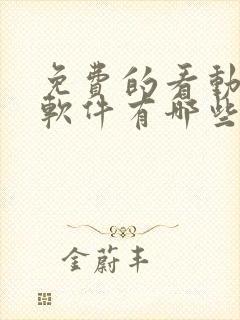 免费的看動
軟件有哪些
金蔚丰